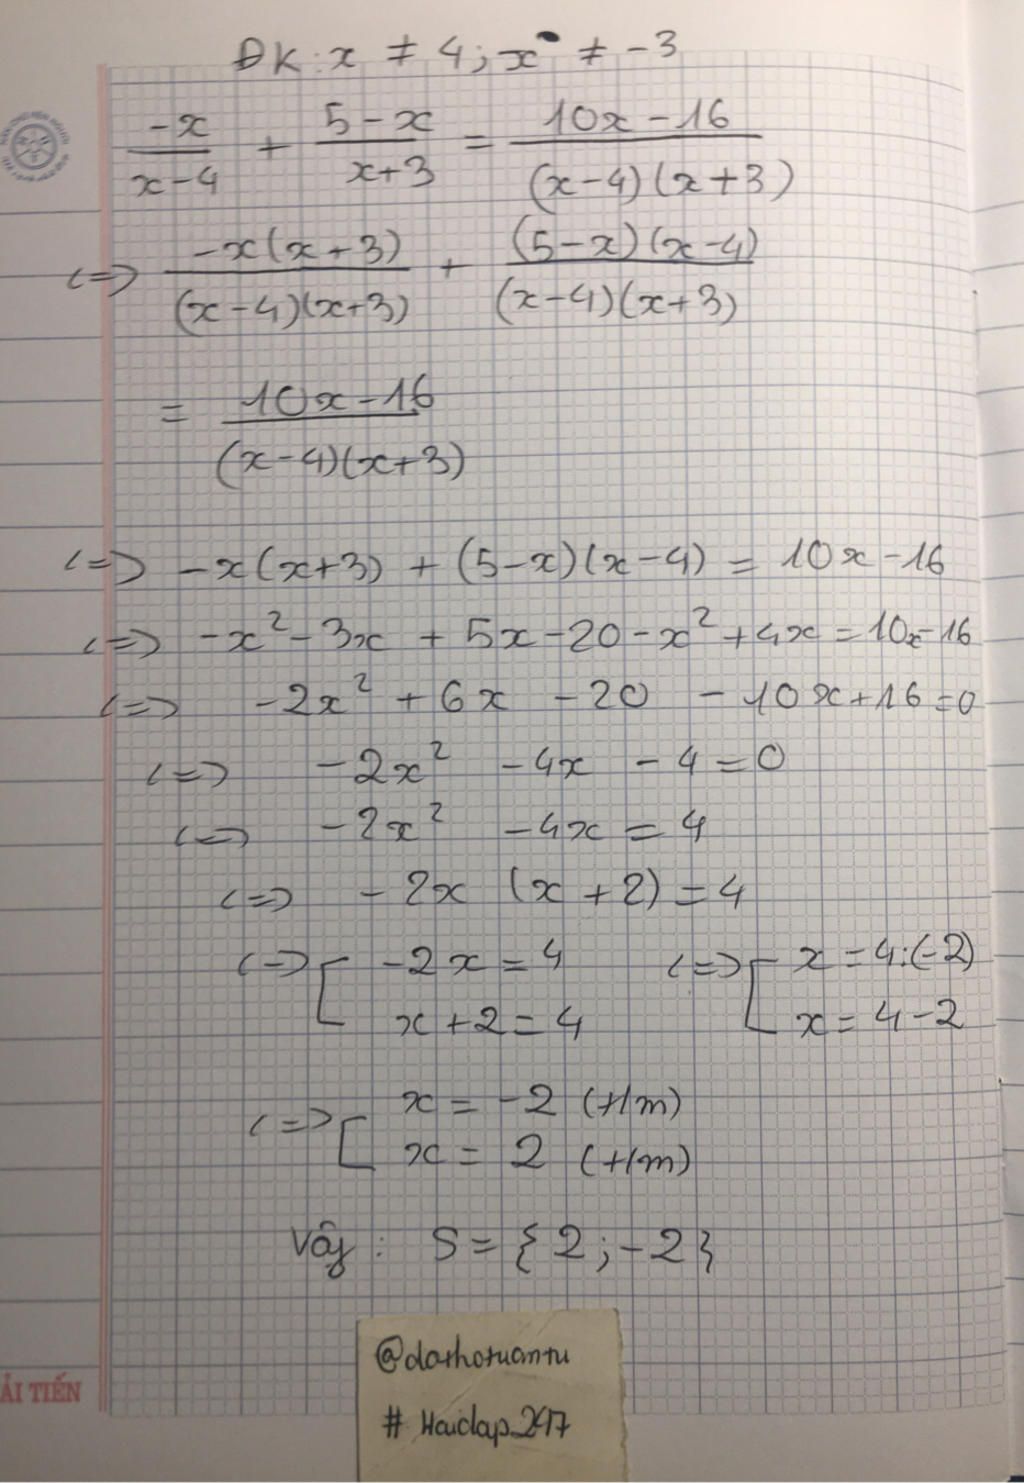 ĐK: x ≠ 4; x ≠ -3
-x/(x-4) + (5-x)/(x+3) = (10x-16)/((x-4)(x+3))
<=> -x(x+3)/((x-4)(x+3)) + (5-x)(x-4)/((x-4)(x+3))
= (10x-16)/((x-4)(x+3))
<=> -x(x+3) + (5-x)(x-4) = 10x-16
<=> -x² - 3x + 5x - 20 - x² + 4x = 10x-16
<=> -2x² + 6x - 20 - 10x + 16 = 0
<=> -2x² - 4x - 4 = 0
<=> -2x² - 4x = 4
<=> -2x (x + 2) = 4
<=> [ -2x = 4 <=> [ x = 4:(-2)
x + 2 = 4 x = 4 - 2
<=> [ x = -2 (t/m)
x = 2 (t/m)
Vậy: S = {2; -2}
ẢI TIẾN
@dathotuantu
# Hoidap_247